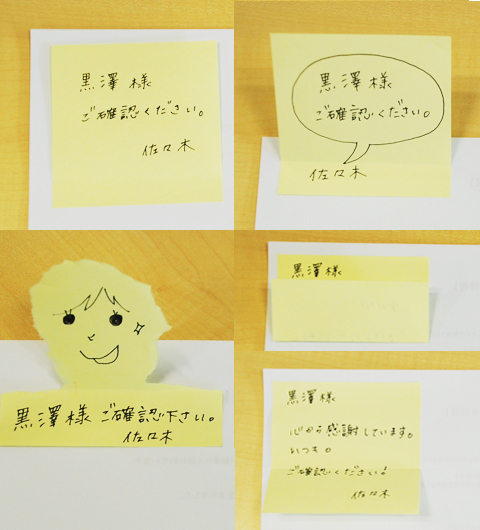 黒澤様
ご確認ください。
佐々木
黒澤様
ご確認ください。
佐々木
黒澤様 ご確認下さい。
佐々木
黒澤様
黒澤様
心から感謝しています。
いつも。
ご確認ください!
佐々木